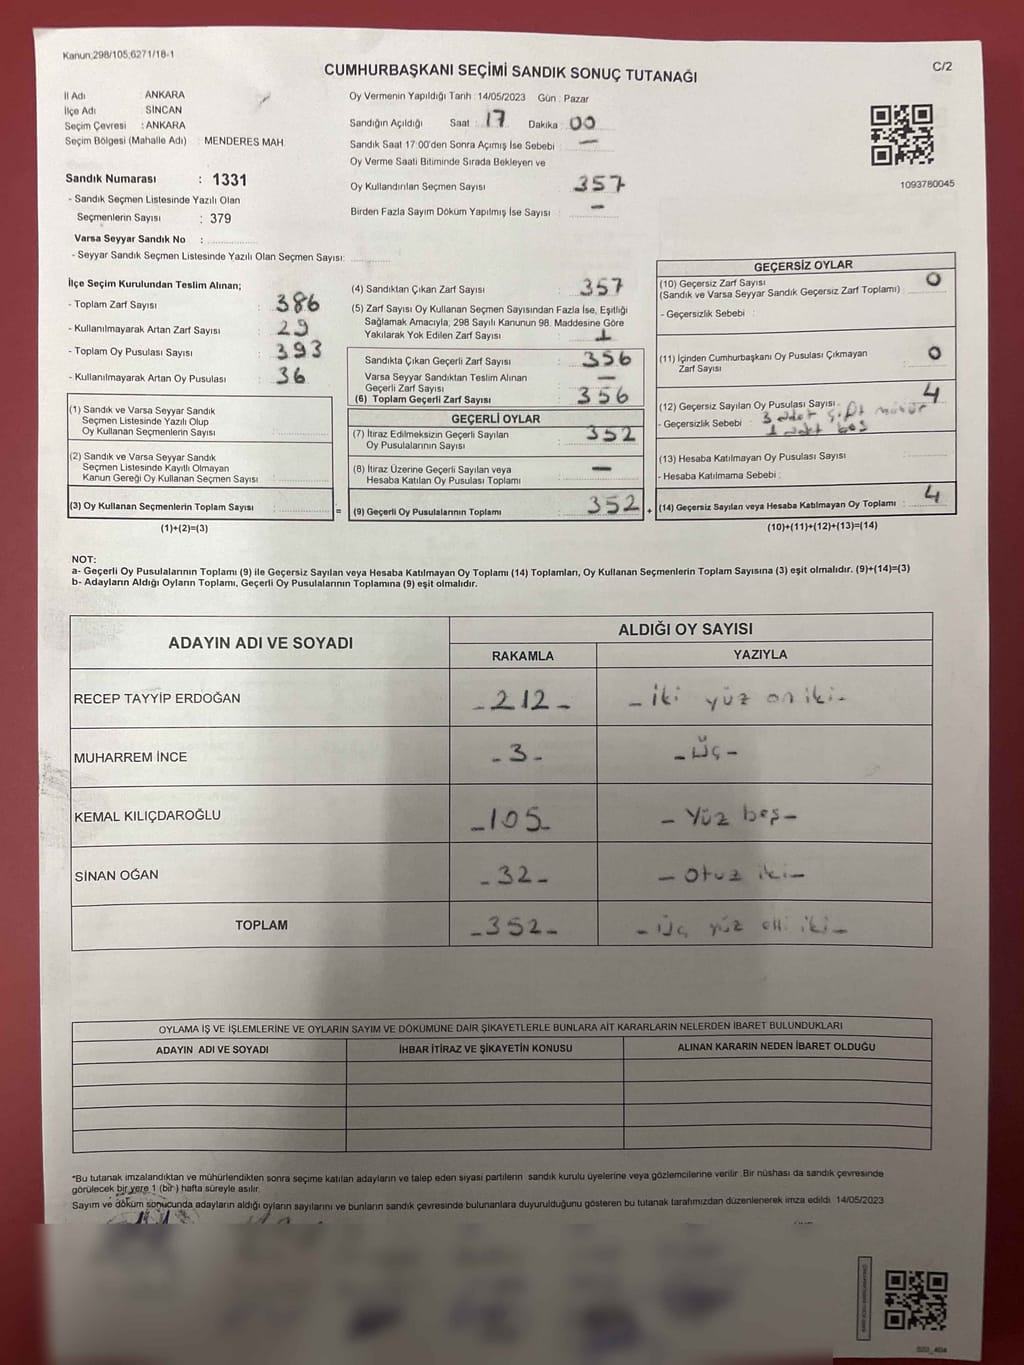 Kanun 298/105,6271/18-1
C/2
CUMHURBAŞKANI SEÇİMİ SANDIK SONUÇ TUTANAĞI
İl Adı ANKARA
İlçe Adı SİNCAN
Seçim Çevresi : ANKARA
Seçim Bölgesi (Mahalle Adı) : MENDERES MAH.
Sandık Numarası : 1331
- Sandık Seçmen Listesinde Yazılı Olan
Seçmenlerin Sayısı : 379
Varsa Seyyar Sandık No :
- Seyyar Sandık Seçmen Listesinde Yazılı Olan Seçmen Sayısı:
Oy Vermenin Yapıldığı Tarih : 14/05/2023 Gün : Pazar
Sandığın Açıldığı Saat : 17 Dakika : 00
Sandık Saat 17:00'den Sonra Açımış İse Sebebi : —
Oy Verme Saati Bitiminde Sırada Bekleyen ve
Oy Kullandırılan Seçmen Sayısı 357
Birden Fazla Sayım Döküm Yapılmış İse Sayısı : —
1093780045
İlçe Seçim Kurulundan Teslim Alınan;
- Toplam Zarf Sayısı : 386
- Kullanılmayarak Artan Zarf Sayısı : 29
- Toplam Oy Pusulası Sayısı : 393
- Kullanılmayarak Artan Oy Pusulası : 36
(1) Sandık ve Varsa Seyyar Sandık
Seçmen Listesinde Yazılı Olup
Oy Kullanan Seçmenlerin Sayısı :
(2) Sandık ve Varsa Seyyar Sandık
Seçmen Listesinde Kayıtlı Olmayan
Kanun Gereği Oy Kullanan Seçmen Sayısı :
(3) Oy Kullanan Seçmenlerin Toplam Sayısı :
(1)+(2)=(3)
=
(4) Sandıktan Çıkan Zarf Sayısı : 357
(5) Zarf Sayısı Oy Kullanan Seçmen Sayısından Fazla İse, Eşitliği
Sağlamak Amacıyla, 298 Sayılı Kanunun 98. Maddesine Göre
Yakılarak Yok Edilen Zarf Sayısı : 1
Sandıkta Çıkan Geçerli Zarf Sayısı : 356
Varsa Seyyar Sandıktan Teslim Alınan
Geçerli Zarf Sayısı : —
(6) Toplam Geçerli Zarf Sayısı : 356
GEÇERLİ OYLAR
(7) İtiraz Edilmeksizin Geçerli Sayılan
Oy Pusulalarının Sayısı : 352
(8) İtiraz Üzerine Geçerli Sayılan veya
Hesaba Katılan Oy Pusulası Toplamı : —
(9) Geçerli Oy Pusulalarının Toplamı : 352
+
GEÇERSİZ OYLAR
(10) Geçersiz Zarf Sayısı
(Sandık ve Varsa Seyyar Sandık Geçersiz Zarf Toplamı) : 0
- Geçersizlik Sebebi :
(11) İçinden Cumhurbaşkanı Oy Pusulası Çıkmayan
Zarf Sayısı : 0
(12) Geçersiz Sayılan Oy Pusulası Sayısı : 4
- Geçersizlik Sebebi : 3 adet çift mühür
1 adet boş
(13) Hesaba Katılmayan Oy Pusulası Sayısı :
- Hesaba Katılmama Sebebi :
(14) Geçersiz Sayılan veya Hesaba Katılmayan Oy Toplamı : 4
(10)+(11)+(12)+(13)=(14)
NOT:
a- Geçerli Oy Pusulalarının Toplamı (9) ile Geçersiz Sayılan veya Hesaba Katılmayan Oy Toplamı (14) Toplamları, Oy Kullanan Seçmenlerin Toplam Sayısına (3) eşit olmalıdır. (9)+(14)=(3)
b- Adayların Aldığı Oyların Toplamı, Geçerli Oy Pusulalarının Toplamına (9) eşit olmalıdır.
ADAYIN ADI VE SOYADI
ALDIĞI OY SAYISI
RAKAMLA YAZIYLA
RECEP TAYYİP ERDOĞAN -212- - iki yüz on iki -
MUHARREM İNCE -3- - Üç -
KEMAL KILIÇDAROĞLU -105- - Yüz beş -
SİNAN OĞAN -32- - Otuz iki -
TOPLAM -352- - Üç yüz elli iki -
OYLAMA İŞ VE İŞLEMLERİNE VE OYLARIN SAYIM VE DÖKÜMÜNE DAİR ŞİKAYETLERLE BUNLARA AİT KARARLARIN NELERDEN İBARET BULUNDUKLARI
ADAYIN ADI VE SOYADI İHBAR İTİRAZ VE ŞİKAYETİN KONUSU ALINAN KARARIN NEDEN İBARET OLDUĞU
*Bu tutanak imzalandıktan ve mühürlendikten sonra seçime katılan adayların ve talep eden siyasi partilerin sandık kurulu üyelerine veya gözlemcilerine verilir. Bir nüshası da sandık çevresinde
görülecek bir yere 1 (bir) hafta süreyle asılır.
Sayım ve döküm sonucunda adayların aldığı oyların sayılarını ve bunların sandık çevresinde bulunanlara duyurulduğunu gösteren bu tutanak tarafımızdan düzenlenerek imza edildi. 14/05/2023